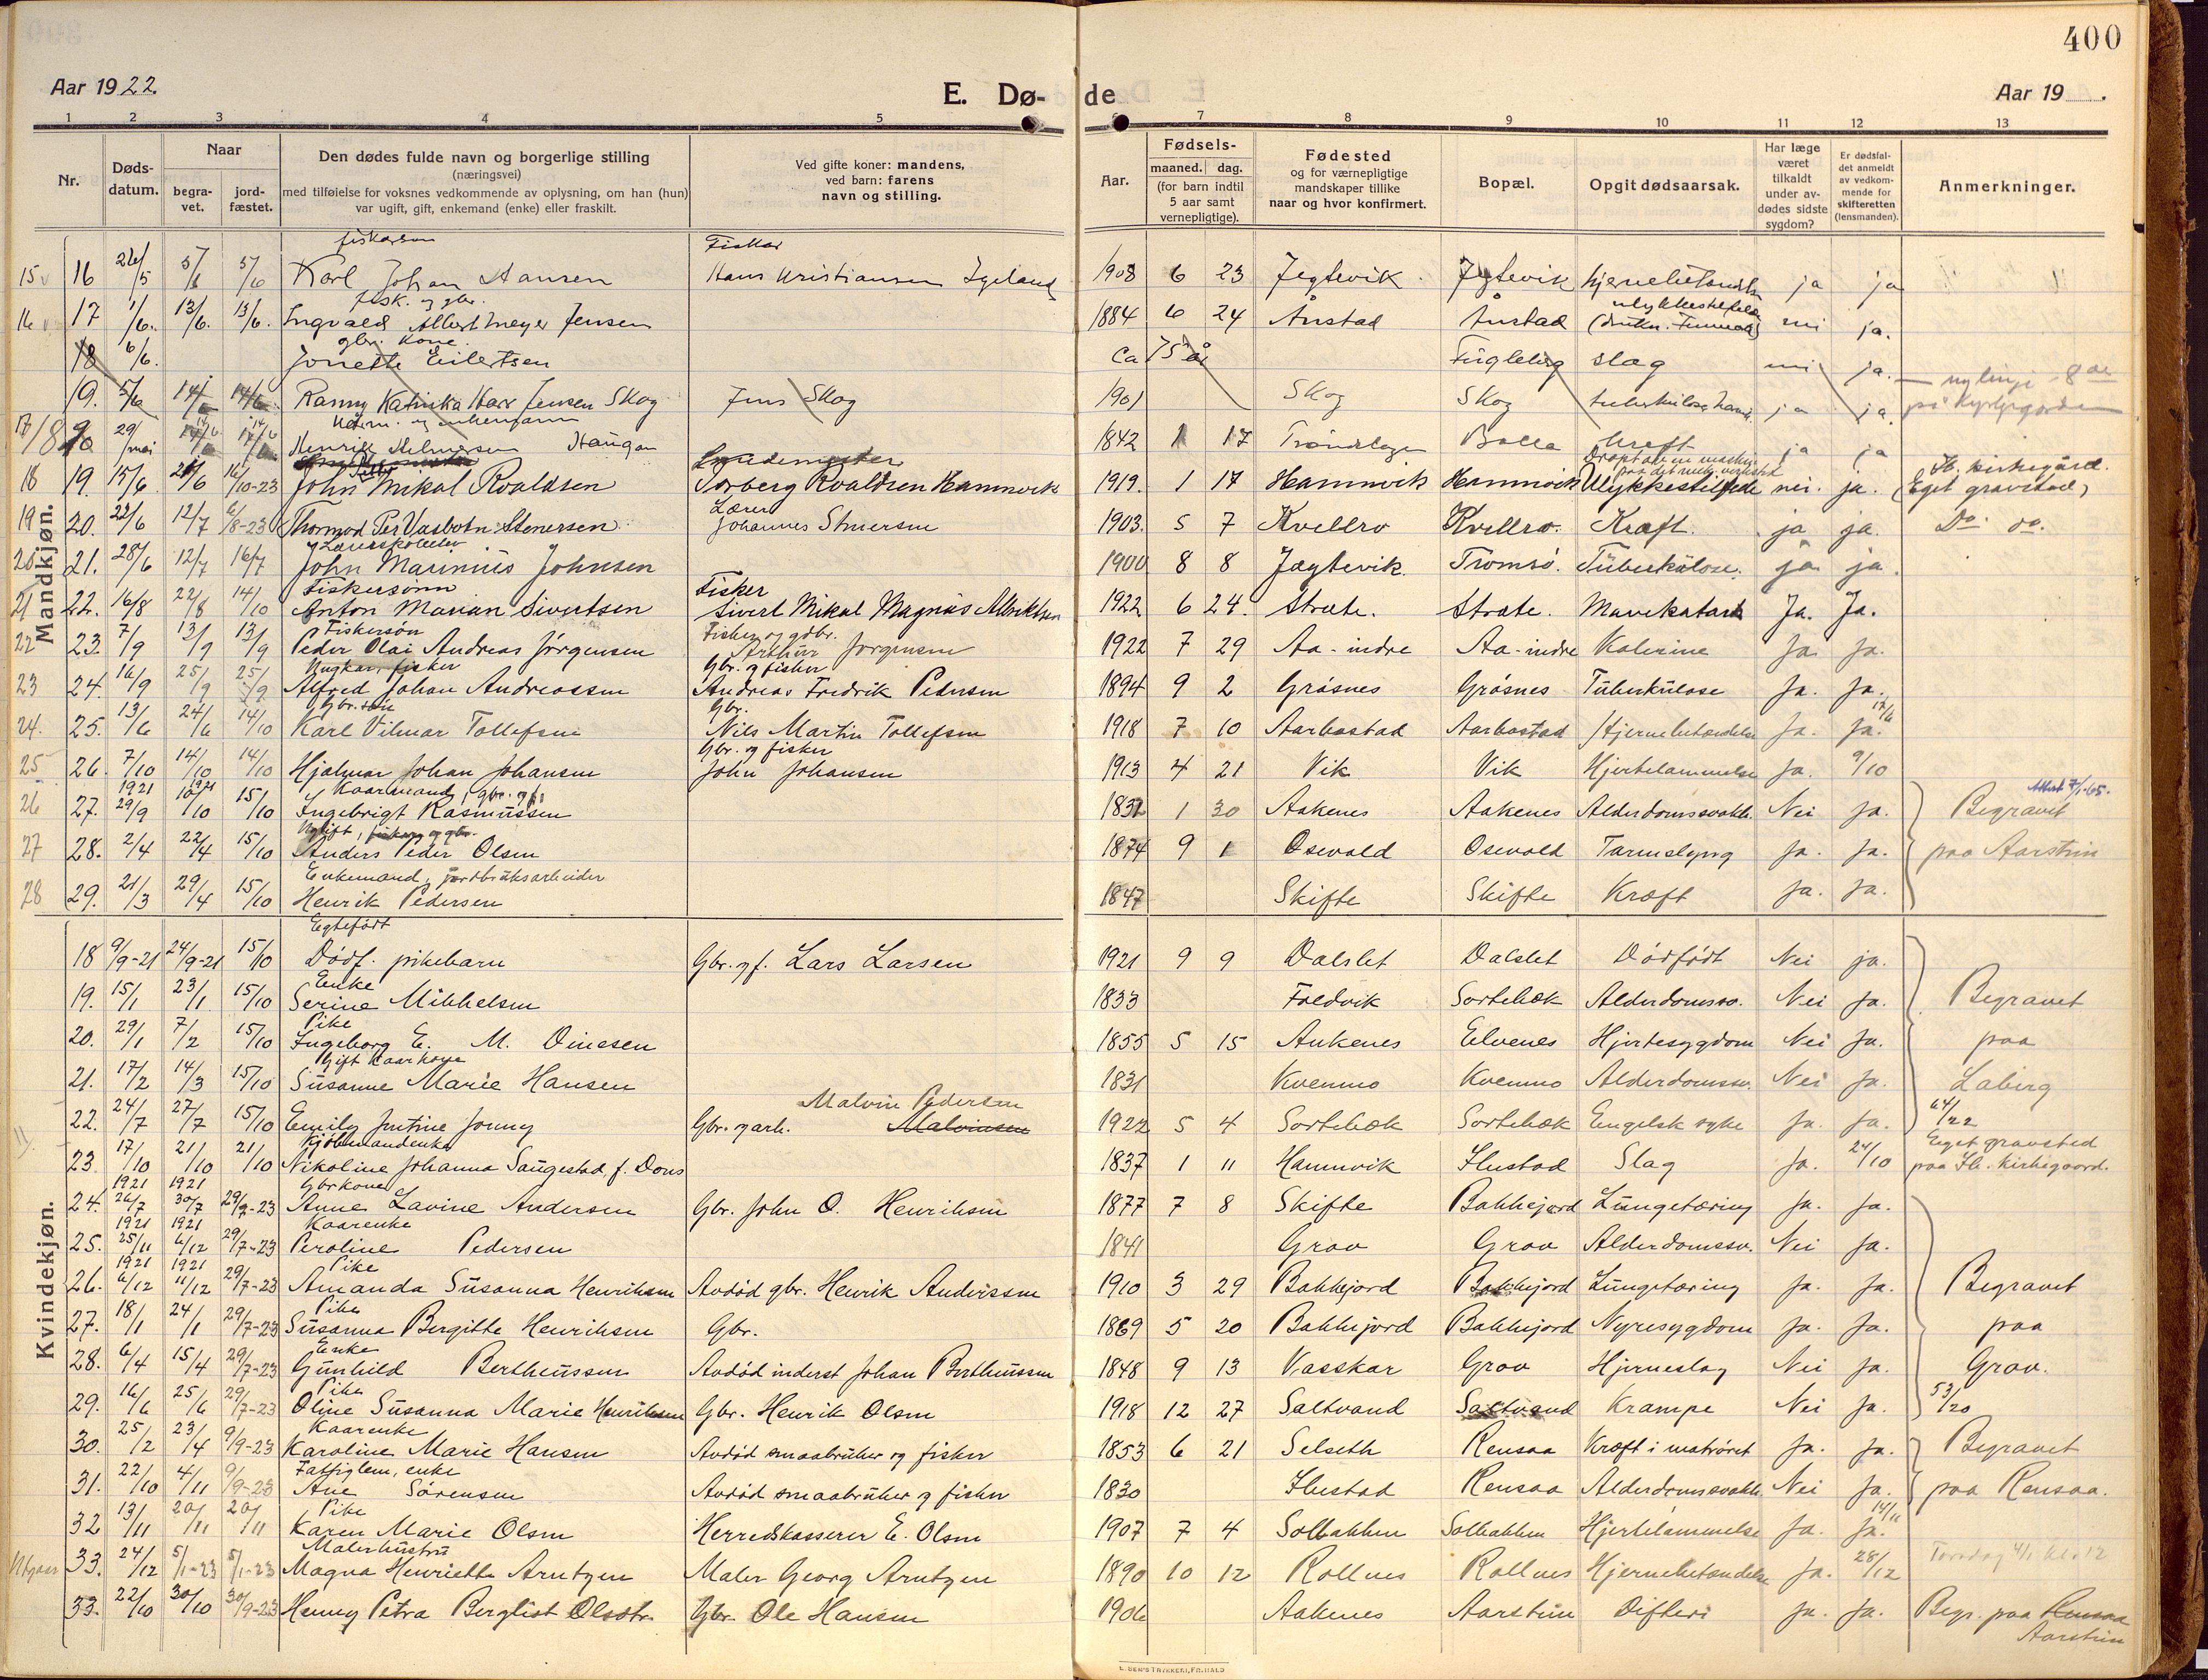 400
Aar 1922.
E. Dø-
de
Aar 19 .
1 2 3 4 5 6 7 8 9 10 11 12 13
Nr.
Døds-
datum.
Naar
begra-
vet.
jord-
fæstet.
Den dødes fulde navn og borgerlige stilling
(næringsvei)
med tilføielse for voksnes vedkommende av oplysning, om han (hun)
var ugift, gift, enkemand (enke) eller fraskilt.
Ved gifte koner: mandens,
ved barn: farens
navn og stilling.
Aar.
Fødsels-
maaned. dag.
(for barn indtil
5 aar samt
vernepligtige).
Fødested
og for værnepligtige
mandskaper tillike
naar og hvor konfirmert.
Bopæl.
Opgit dødsaarsak.
Har læge
været
tilkaldt
under av-
dødes sidste
sygdom?
Er dødsfal-
det anmeldt
av vedkom-
mende for
skifteretten
(lensmanden).
Anmerkninger.
Mandkjøn.
fiskersøn Fisker
15 16 26/5 5/6 5/6 Karl Johan Hansen Hans Kristiansen 1908 6 23 Jegtevik Jegtevik hjernebetændelse ja ja
fisk. og gbr.
16 17 1/6. 13/6. 13/6. Ingvald Albert Meyer Jensen 1884 6 24 Ånstad Ånstad nei ja.
gbr. kone
18 6/6. Jonette Eilertsen Ca 75 år Fugleberg slag nei ja.
19. 5/6 14/6 14/6 Ranny Katinka Jensen Skog Jens Skog 1901 Skog Skog ja ja
17/ 29/mai 17/6 17/6 Henrik Helmersen Haugan 1842 1 17 Balla kræft ja ja
18 19. 15/6 21/6 16/10-23 John Mikal Roaldsen Torberg Roaldsen Hamnvik 1919. 1 17 Hamnvik Hamnvik Ulykkestilfelde nei. ja. (Eget gravsted)
Lærer
19 20. 22/6 12/7 6/8-23 Thormod Per Vasbotn Stenersen Johannes Stenersen 1903. 5 7 Kvellro Kvellro. Kræft. ja ja. Do. do.
Lærerskoleelev
20 21. 28/6 12/7 16/7 John Marinius Johnsen 1900 8 8 Jægtevik. Tromsø. Tüberkülose. ja ja.
Fiskersønn Fisker
21 22. 16/8 22/8 14/10 Anton Marian Sivertsen Sivert Mikal Magnus Albriktsen 1922 6 24. Strate. Strate. Mavekatarh Ja. Ja.
Fiskersøn Fisker og gdbr.
22 23. 7/9 13/9 13/9 Peder Olai Andreas Jørgensen Arthur Jørgensen 1922 7 29 Aa-indre Aa-indre Kolerine Ja. Ja.
Ungkar, fisker Gbr. og fisker
23 24. 16/9 25/9 25/9 Alfred Johan Andreassen Andreas Fredrik Pedersen 1894 9 2 Grøsnes Grøsnes Tüberkülose Ja. Ja.
Gbr. søn Gbr. 17/6
24. 25. 13/6 24/6 14/10 Karl Vilmar Tollefsen Nils Martin Tollefsen 1918 7 10 Aarbostad Aarbostad Hjernebetændelse Ja. Ja.
Gbr. og fisker
25 26. 7/10 14/10 14/10 Hjalmar Johan Johansen John Johansen 1913 4 21 Vik Vik Hjertelammelse Ja. 9/10
1921 Kaarmand, gbr. og f.
26 27. 29/9 10/10 15/10 Ingebrigt Rasmussen 1831 1 30 Aakenes Aakenes Alderdomssvakh. Nei Ja. Begravet
Ugift, fisker og gbr.
27 28. 2/4 22/4 15/10 Anders Peder Olsen 1874 9 1 Osevold Osevold Tarmslyng Ja. Ja. paa Aarstein
Enkemand, jordbruksarbeider
28 29. 21/3 29/4 15/10 Henrik Pedersen 1847 Skifte Skifte Kræft Ja. Ja.
Kvindekjøn.
Egtefødt
18 9/9-21 24/9-21 15/10 Dødf. pikebarn Gbr. og f. Lars Larsen 1921 9 9 Dalslet Dalslet Dødfødt Nei ja.
Enke
19. 15/1 23/1 15/10 Serine Mikkelsen 1833 Foldvik Sortebæk Alderdomssv. Nei Ja. Begravet
Pike
20. 29/1 7/2 15/10 Ingeborg E. M. Dinesen 1855 5 15 Aukenes Elvenes Hjertesygdom Nei Ja. paa
Gift kaarkone
21. 17/2 14/3 15/10 Susanne Marie Hansen 1831 Kvernmo Kvernmo Alderdomssv. Nei Ja. Laberg
Malvin Pedersen 64/22
22. 24/7 27/7 15/10 Emily Justine Jonny Gbr. og arb. Malvinsen 1922 5 4 Sortebæk Sortebæk Engelsk syke Ja. Ja.
Kjøbmandenke Eget gravsted
23. 17/10 21/10 21/10 Nikoline Johanna Saugestad, f. Dons 1837 1 11 Hamnvik Ilustad Slag Ja. 24/10 paa Ib. kirkegaard.
1921 1921 Gbrkone
24. 26/7 30/7 29/7-23 Anne Lavine Andersen Gbr. John O. Henriksen 1877 7 8 Skifte Bakkejord Lungetæring Ja. Ja.
1921 1921 Kaarenke
25. 25/11 4/12 29/7-23 Peroline Pedersen 1841 Grov Grov Alderdomssv. Nei Ja.
1921 1921 Pike
26. 6/12 11/12 29/7-23 Amanda Susanna Henriksen Avdød gbr. Henrik Andersen 1910 3 29 Bakkejord Bakkejord Lungetæring Ja. Ja. Begravet
Pike
27. 18/1 24/1 29/7-23 Susanna Bergitte Henriksen Gbr. 1869 5 20 Bakkejord Bakkejord Nyresygdom Ja. Ja. paa
Enke
28. 6/4 15/4 29/7-23 Gunhild Bertheussen Avdød inderst Johan Bertheussen 1848 9 13 Vasskar Grov Hjerneslag Nei Ja. Grov.
Pike 53/20
29. 16/6 25/6 29/7-23 Oline Susanna Marie Henriksen Gbr. Henrik Olsen 1918 12 27 Saltvand Saltvand Krampe Nei Ja.
Kaarenke
30. 25/2 23/4 9/9-23 Karoline Marie Hansen Avdød smaabruker og fisker 1853 6 21 Selseth Rensaa Kræft i matrøret Ja. Ja. Begravet
Fattiglem, enke
31. 22/10 4/11 9/9-23 Ane Sørensen Avdød smaabruker og fisker 1830 Ilustad Rensaa Alderdomssvakh. Nei Ja. paa Rensaa.
Pike 14/11
32 13/11 20/11 20/11 Karen Marie Olsen Herredskasserer E. Olsen 1907 7 4 Solbakken Solbakken Hjertelammelse Ja. Ja.
Malerhustru
33. 24/12 5/1-23 5/1-23 Magna Henriette Arntzen Maler Georg Arntzen 1890 10 12 Rollnes Rollnes Hjernebetændelse Ja. 28/12 Torsdag 4/1 kl. 12
33. 22/10 30/10 30/9-23 Henny Petra Berglist Olsdtr. Gbr. Ole Hansen 1906 Aakenes Aarstein Difteri Ja. Ja. Begr. paa Rensaa
Aarstein